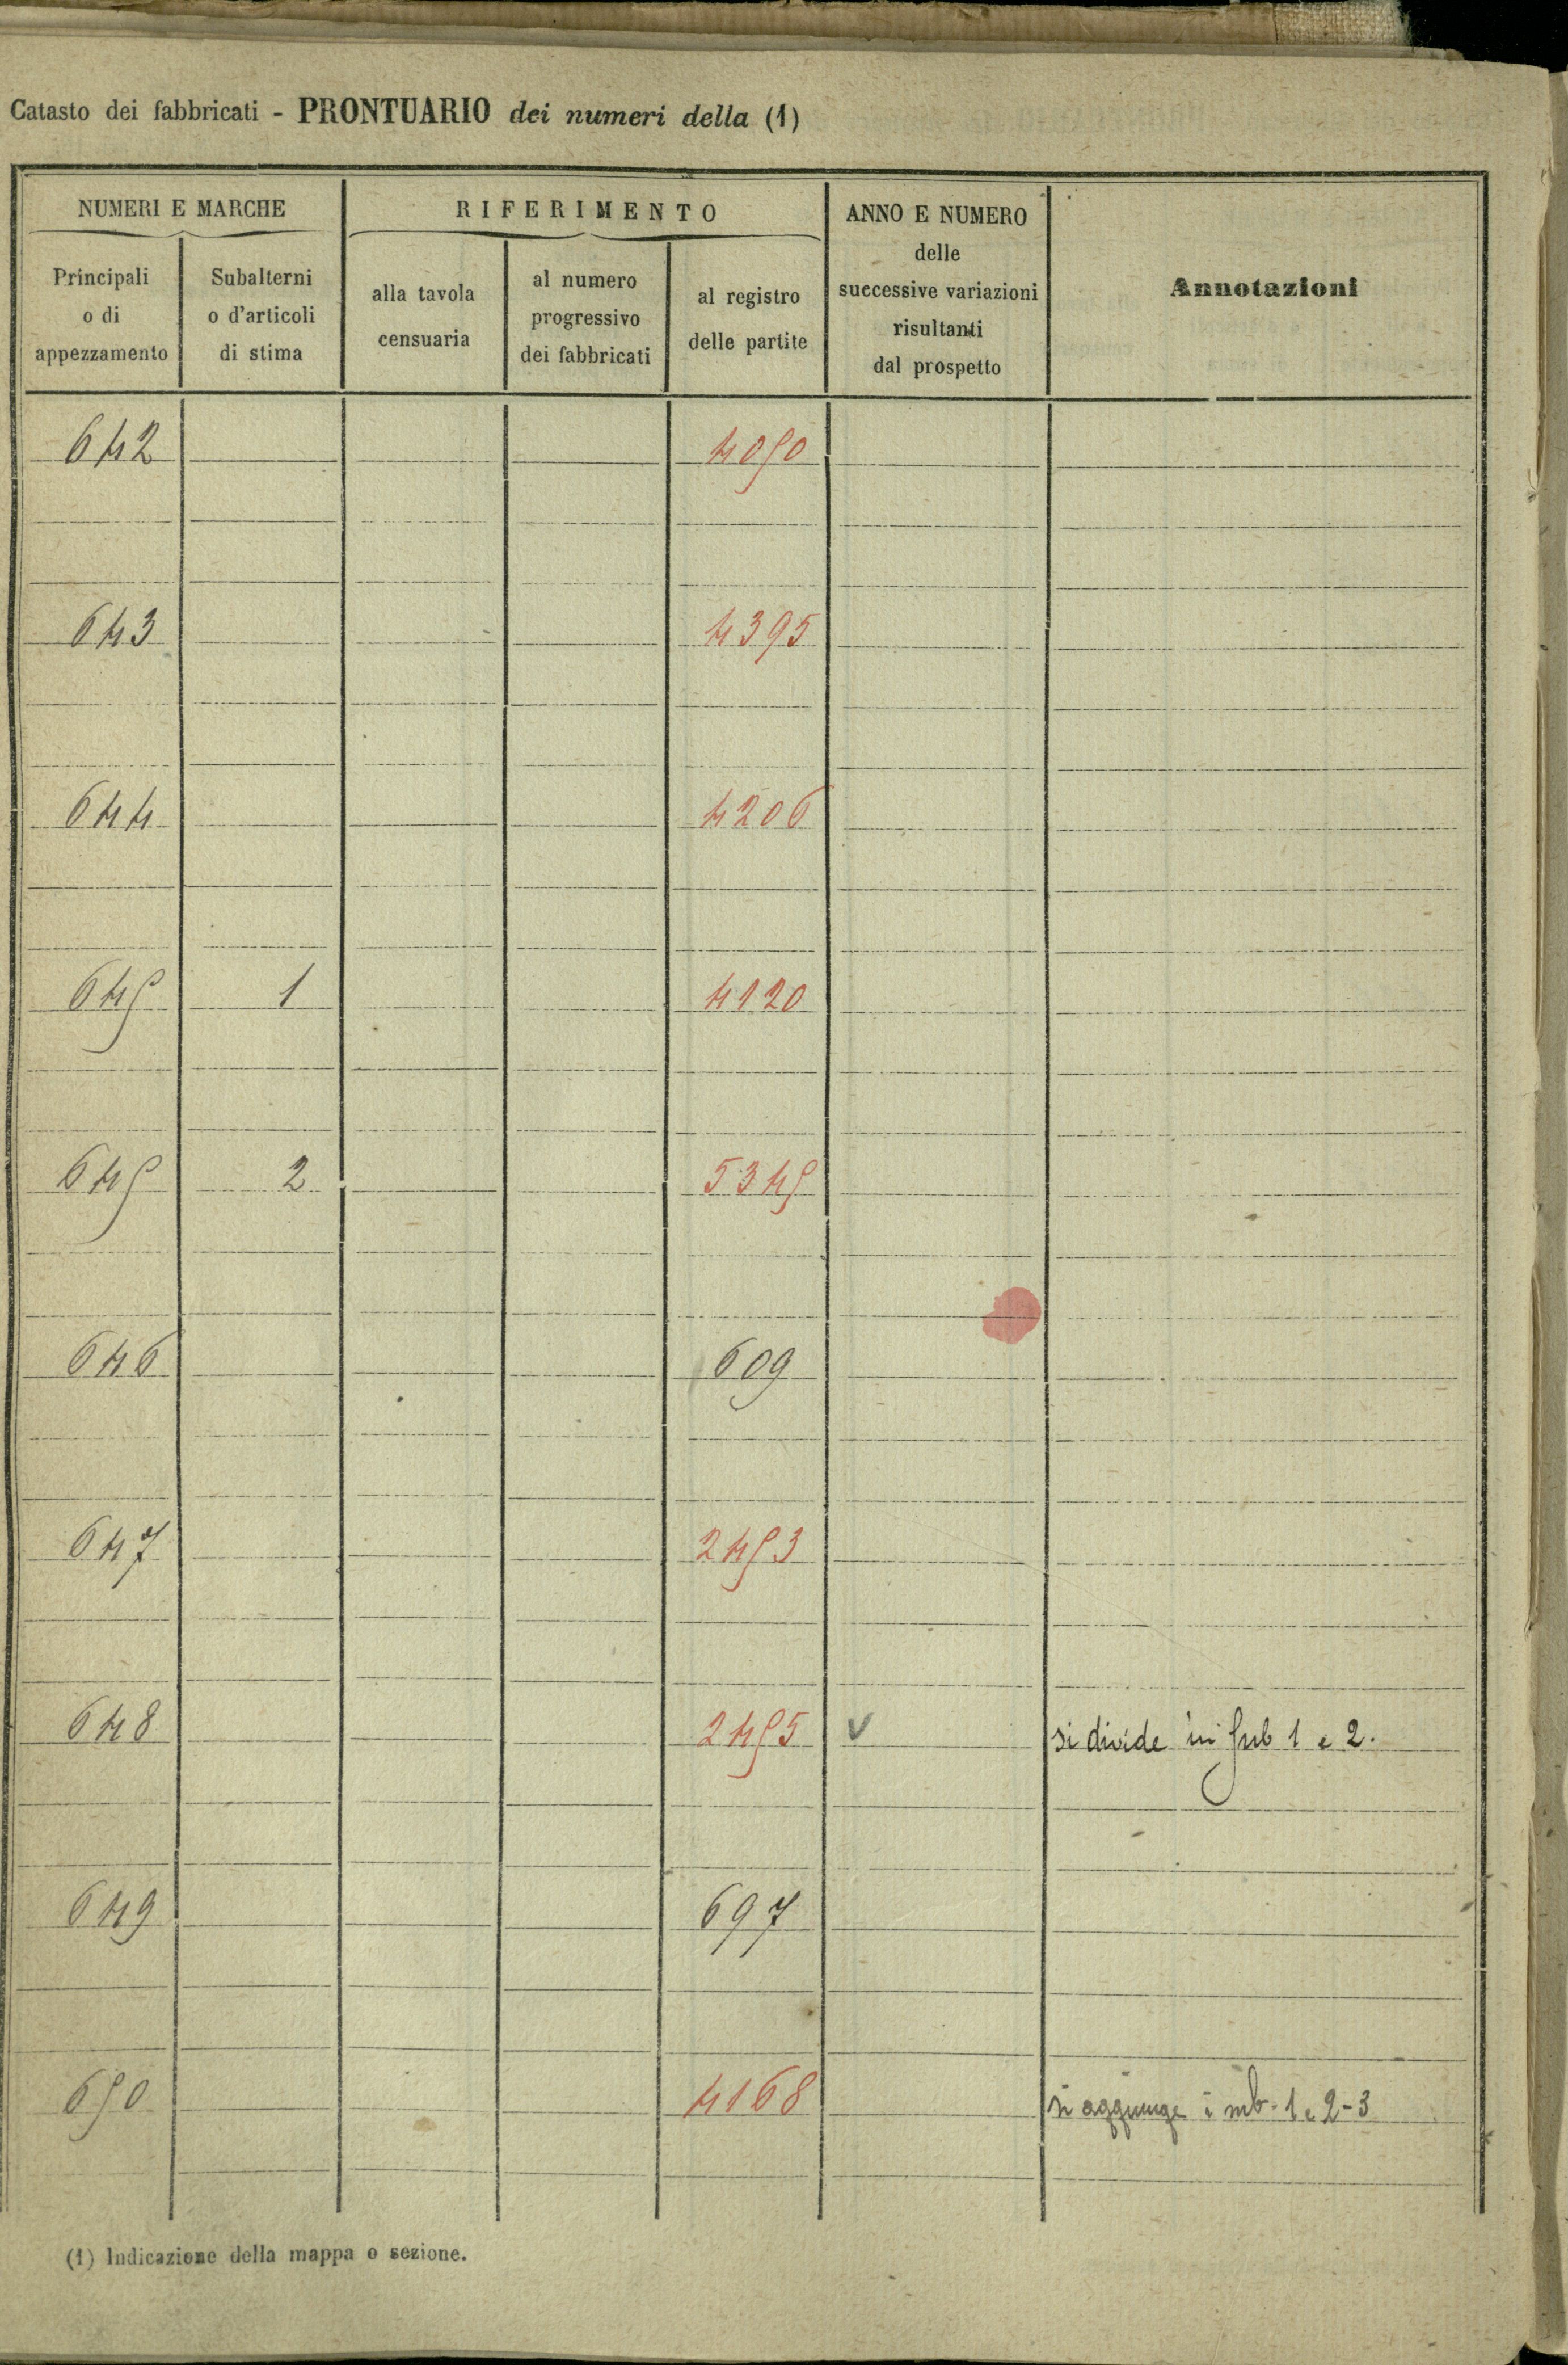 Catasto dei fabbricati - PRONTUARIO dei numeri della (1)
NUMERI E MARCHE
RIFERIMENTO
ANNO E NUMERO
delle
successive variazioni
risultanti
dal prospetto
Annotazioni
Principali
o di
appezzamento
Subalterni
o d'articoli
di stima
alla tavola
censuaria
al numero
progressivo
dei fabbricati
al registro
delle partite
642 4050
643 4395
644 4206
645 1 4120
645 2 5345
646 609
647 2453
648 2455 V si divide in sub 1 e 2.
649 697
650 4168 si aggiunge i sub. 1 e 2-3
(1) Indicazione della mappa o sezione.